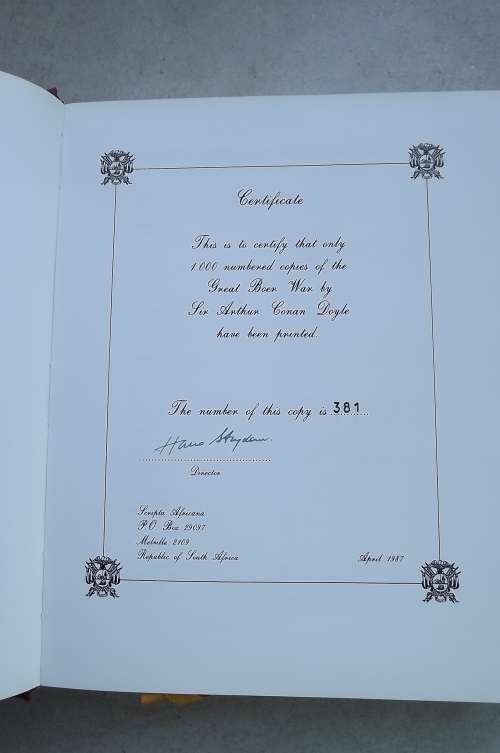 Certificate
This is to certify that only
1 000 numbered copies of the
Great Boer War by
Sir Arthur Conan Doyle
have been printed.
The number of this copy is 381
Hans Strydom.
Director
Scripta Africana
P.O. Box 29097
Melville 2109
Republic of South Africa
April 1987